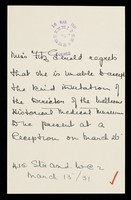 Miss Fitz Gerald regrets
that she is unable to accept
the kind invitation of
the Director of the Wellcome
Historical Medical Museum
to be present at a
Reception on March 25
415 Strand W.C.2
March 15/31